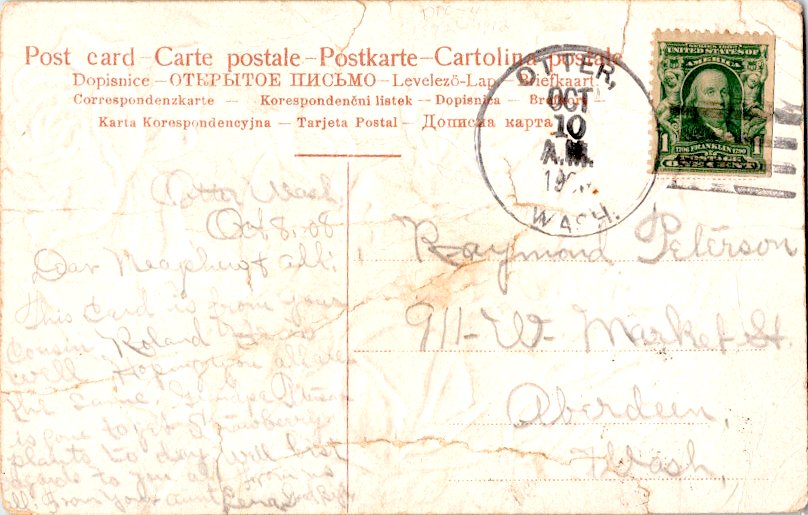 Post card – Carte postale – Postkarte – Cartolina postale
Dopisnice – ОТКРЫТОЕ ПИСЬМО – Levelező-Lap – Briefkaart
Correspondenzkarte – Korespondenční listek – Dopisnica – Brefkort
Karta Korespondencyjna – Tarjeta Postal – Дописна карта
OTTER,
OCT
10
A.M.
WASH.
SERIES 1902
UNITED STATES OF
AMERICA
1706 FRANKLIN 1790
1
POSTAGE
ONE CENT
Wash.
Oct. 8, -08
Dear Neaphew & all:
This card is from your
cousin Roland
well. Hoping you all are
the same. Grandpa
is gone to get Strawberry
plants to day. Will
regards to you all from us
all. From your aunt Lena
Raymond Peterson
911 - W - Market St.
Aberdeen,
Wash,